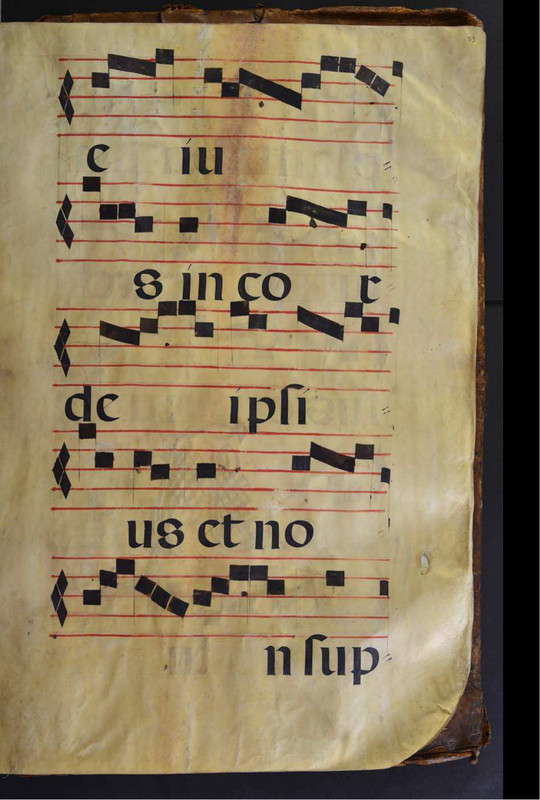 e iu
s in co r
de ipſi
us et no
n ſup